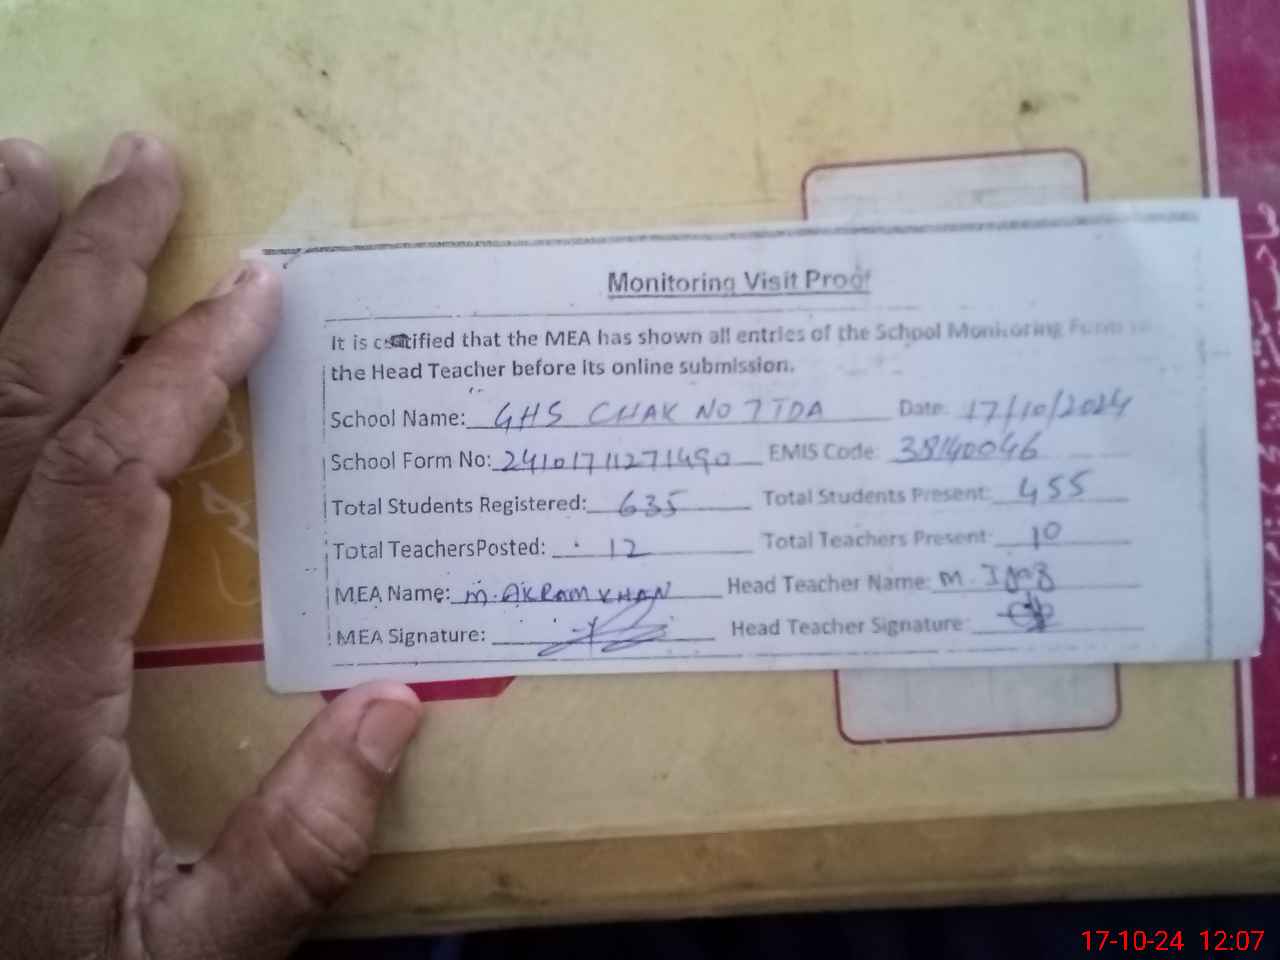 Monitoring Visit Proof
It is certified that the MEA has shown all entries of the School Monitoring Form to
the Head Teacher before its online submission.
School Name: GHS CHAK NO 7 TDA Date: 17/10/2024
School Form No: 24101711271490 EMIS Code: 38140046
Total Students Registered: 635 Total Students Present: 455
Total TeachersPosted: 12 Total Teachers Present: 10
MEA Name: M. AKRAM KHAN Head Teacher Name: M. Ijaz
MEA Signature: Head Teacher Signature:
17-10-24 12:07